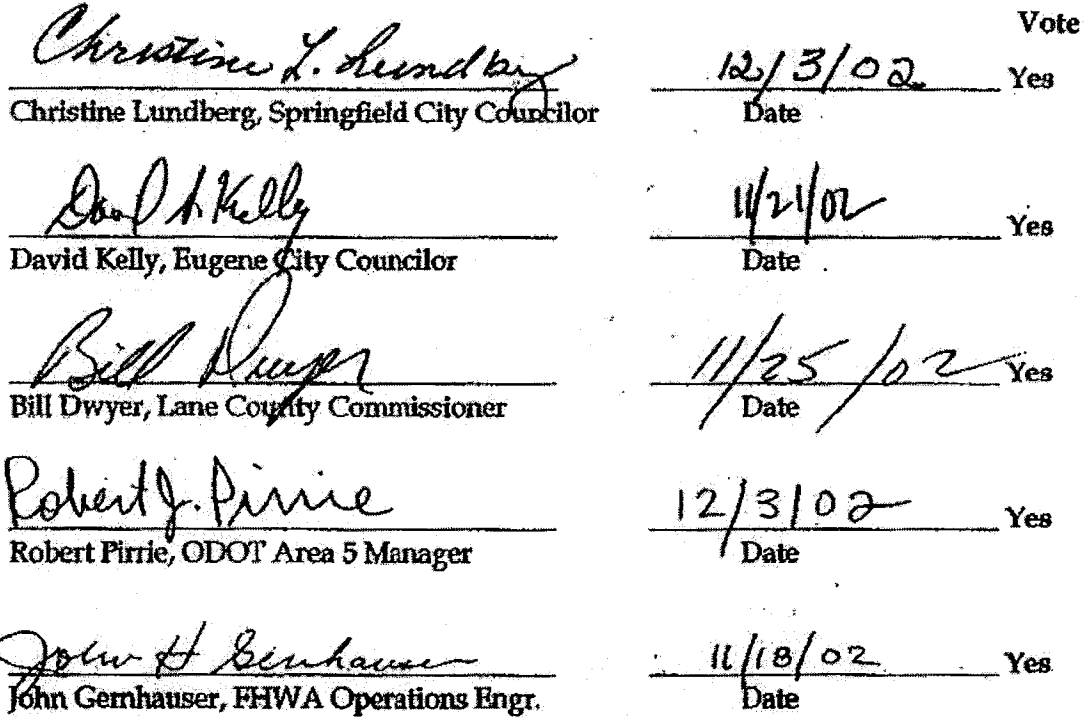 Vote
Christine L. Lundberg 12/3/02 Yes
Christine Lundberg, Springfield City Councilor Date
David S. Kelly 11/21/02 Yes
David Kelly, Eugene City Councilor Date
Bill Dwyer 11/25/02 Yes
Bill Dwyer, Lane County Commissioner Date
Robert J. Pirrie 12/3/02 Yes
Robert Pirrie, ODOT Area 5 Manager Date
John H Gernhauser 11/18/02 Yes
John Gernhauser, FHWA Operations Engr. Date